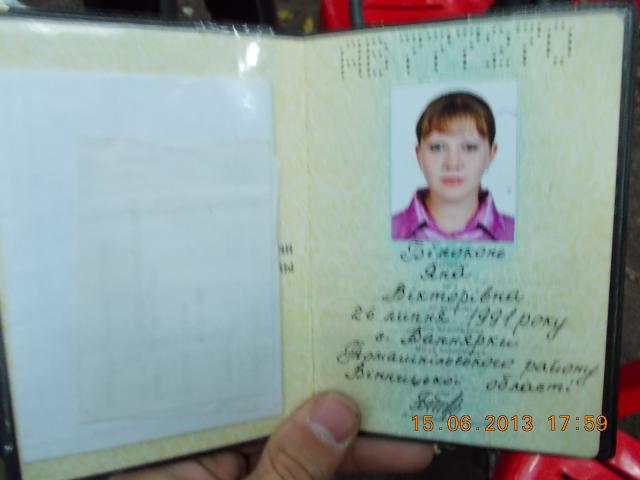 Білоконь
Яна
Вікторівна
26 липня 1991 року
с. Вапнярки
Томашпільського району
Вінницької області
15.06.2013 17:59